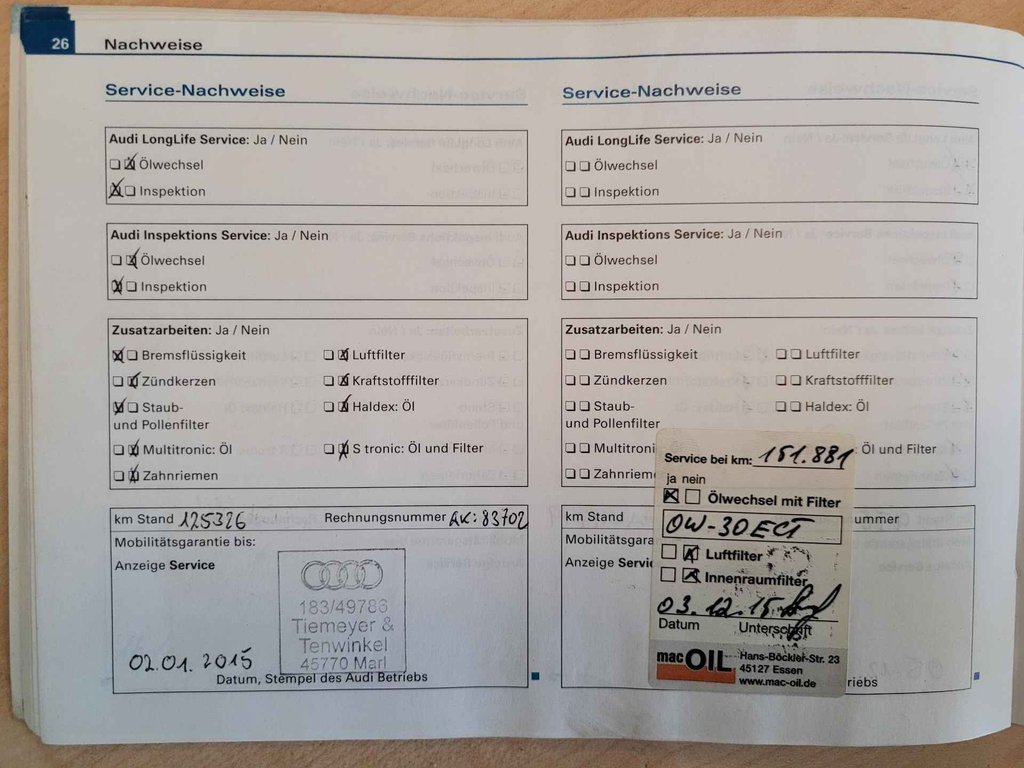 26 Nachweise
Service-Nachweise
Audi LongLife Service: Ja / Nein
Ölwechsel
Inspektion
Audi Inspektions Service: Ja / Nein
Ölwechsel
Inspektion
Zusatzarbeiten: Ja / Nein
Bremsflüssigkeit Luftfilter
Zündkerzen Kraftstofffilter
Staub- Haldex: Öl
und Pollenfilter
Multitronic: Öl S tronic: Öl und Filter
Zahnriemen
km Stand 125326 Rechnungsnummer AK: 83702
Mobilitätsgarantie bis:
Anzeige Service
183/49786
Tiemeyer &
Tenwinkel
45770 Marl
02.01.2015
Datum, Stempel des Audi Betriebs
Service-Nachweise
Audi LongLife Service: Ja / Nein
Ölwechsel
Inspektion
Audi Inspektions Service: Ja / Nein
Ölwechsel
Inspektion
Zusatzarbeiten: Ja / Nein
Bremsflüssigkeit Luftfilter
Zündkerzen Kraftstofffilter
Staub- Haldex: Öl
und Pollenfilter
Multitronic: Öl und Filter
Zahnriemen
km Stand ummer
Mobilitätsgara
Anzeige Servic
riebs
Service bei km: 151.881
ja nein
Ölwechsel mit Filter
0W-30 ECT
Luftfilter
Innenraumfilter
03.12.15
Datum Unterschrift
mac OIL Hans-Böckler-Str. 23
45127 Essen
www.mac-oil.de